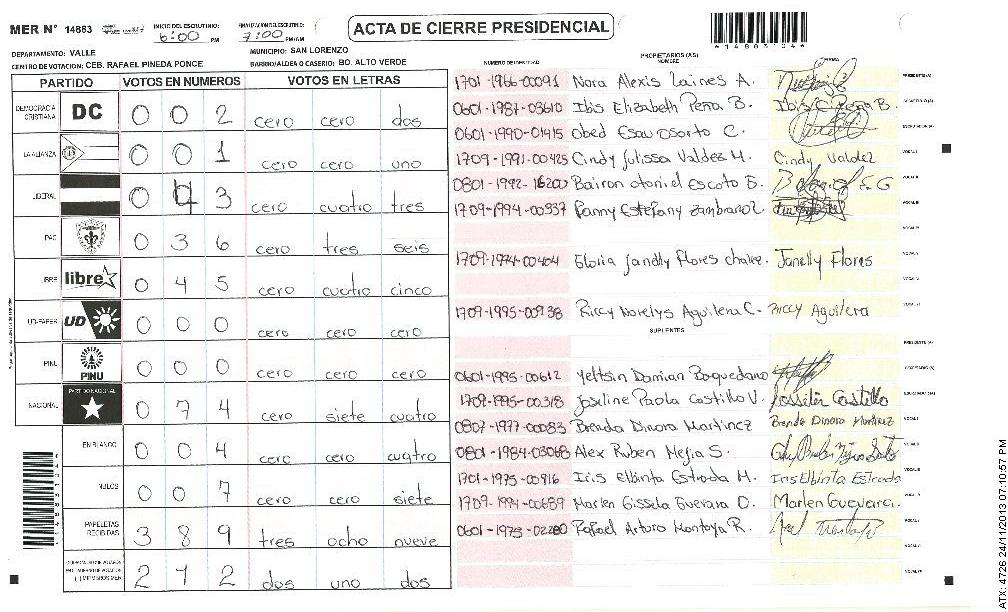 MER N° 14883
INICIO DEL ESCRUTINIO: 6:00 PM
FINALIZACION DEL ESCRUTINIO: 7:00 PM/AM
ACTA DE CIERRE PRESIDENCIAL
DEPARTAMENTO: VALLE
MUNICIPIO: SAN LORENZO
CENTRO DE VOTACION: CEB. RAFAEL PINEDA PONCE
BARRIO/ALDEA O CASERIO: BO. ALTO VERDE
PARTIDO VOTOS EN NUMEROS VOTOS EN LETRAS
DEMOCRACIA CRISTIANA DC 0 0 2 cero cero dos
LA ALIANZA 0 0 1 cero cero uno
LIBERAL 0 4 3 cero cuatro tres
PAC 0 3 6 cero tres seis
LIBRE libre 0 4 5 cero cuatro cinco
UD-FAPER UD 0 0 0 cero cero cero
PINU PINU 0 0 0 cero cero cero
NACIONAL PARTIDO NACIONAL 0 7 4 cero siete cuatro
EN BLANCO 0 0 4 cero cero cuatro
NULOS 0 0 7 cero cero siete
PAPELETAS RECIBIDAS 3 8 9 tres ocho nueve
2 1 2 dos uno dos
NUMERO DE IDENTIDAD PROPIETARIOS (AS) NOMBRE FIRMA
1701-1966-00091 Nora Alexis Laines A. PRESIDENTE(A)
0601-1987-03610 Ibis Elizabeth Peña B. Ibis E Peña B. SECRETARIO (A)
0601-1990-01415 Obed Esau Osorto C. ESCRUTADOR (A)
1709-1991-00425 Cindy Julissa Valdez M. Cindy Valdez VOCAL I
0801-1992-16200 Bairon otoniel Escoto G. VOCAL II
1709-1994-00937 Fanny Estefany Zambrano L. VOCAL III
VOCAL IV
1709-1974-00404 Gloria Janelly Flores Janelly Flores VOCAL V
1709-1995-00938 Riccy Norelys Aguilera C. Riccy Aguilera
SUPLENTES
PRESIDENTE (A)
0601-1995-00612 Yeltsin Damian Baquedano SECRETARIO (A)
1709-1995-00318 Joseline Paola Castillo V. Josselin Castillo ESCRUTADOR (A)
0807-1977-00083 Brenda Dinora Martinez Brenda Dinora Martinez VOCAL I
0801-1984-03068 Alex Ruben Mejia S. VOCAL II
1701-1975-00916 Iris Elbinta Estrada M. Iris Elbinta Estrada VOCAL III
1709-1994-00689 Marlen Gissela Guevara O. Marlen Guevara VOCAL IV
0601-1973-02280 Rafael Arturo Montoya R.
ATX: 4726 24/11/2013 07:10:57 PM